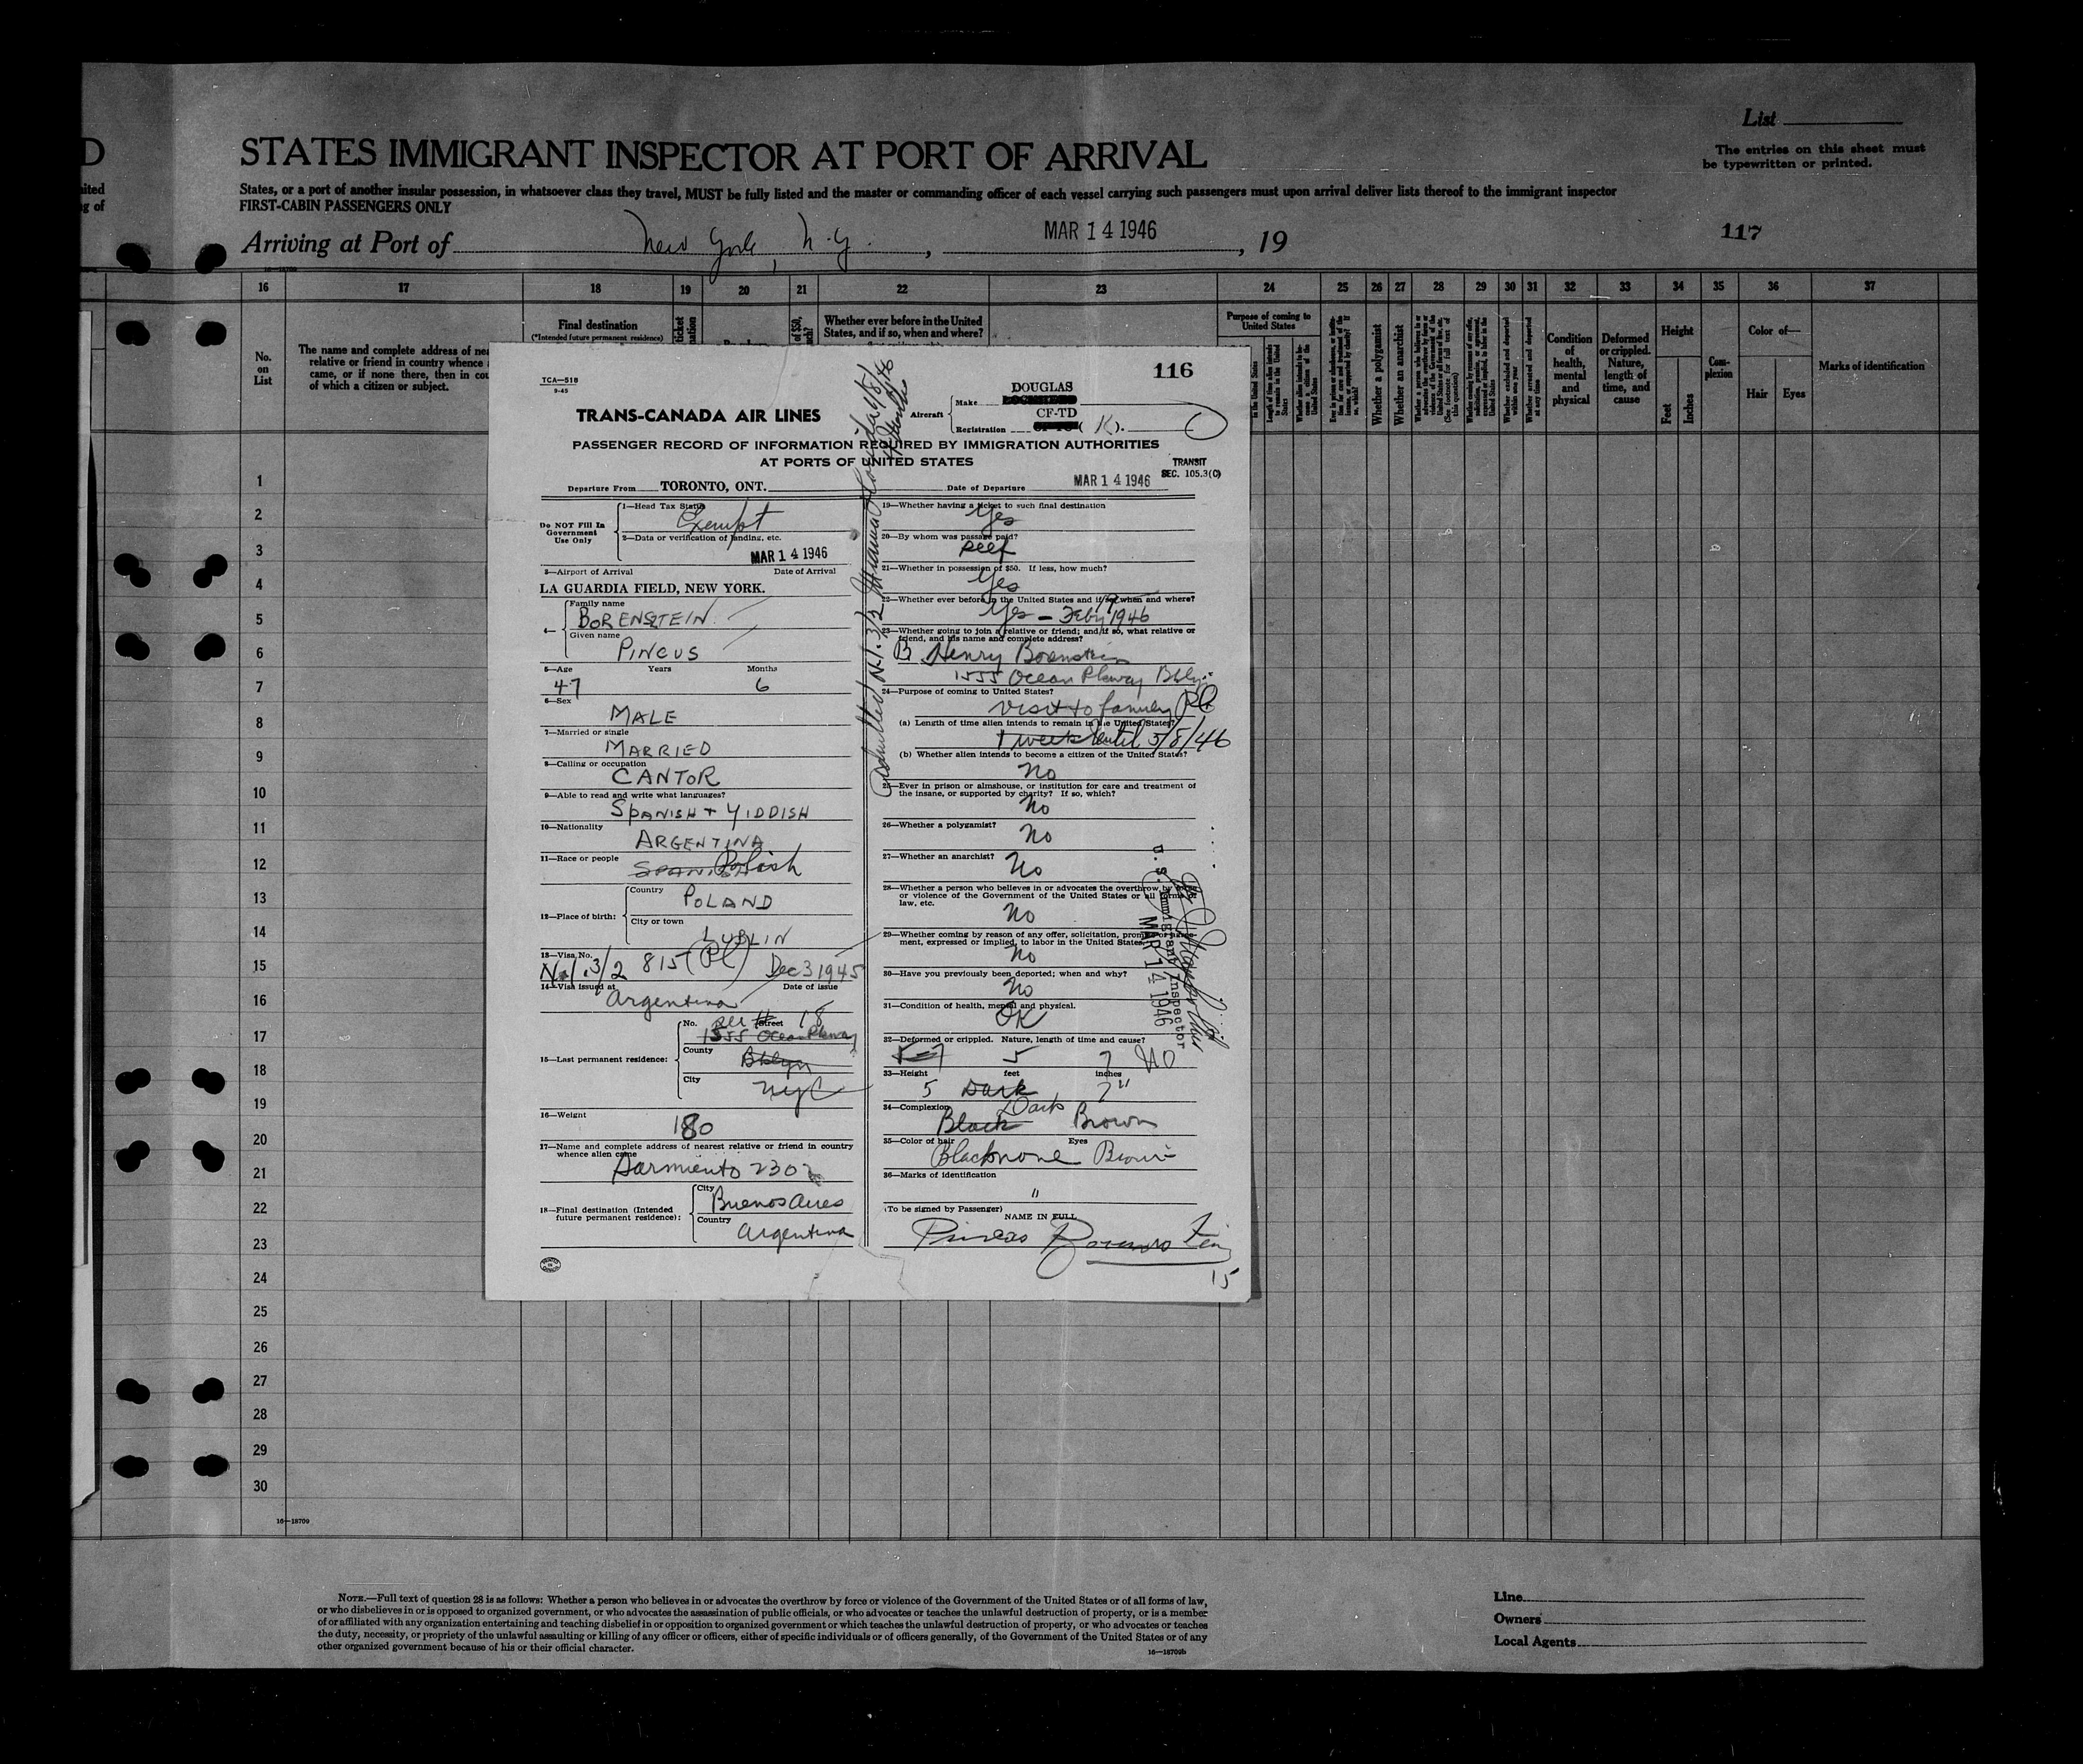 D
ited
g of
List
The entries on this sheet must
be typewritten or printed.
STATES IMMIGRANT INSPECTOR AT PORT OF ARRIVAL
States, or a port of another insular possession, in whatsoever class they travel, MUST be fully listed and the master or commanding officer of each vessel carrying such passengers must upon arrival deliver lists thereof to the immigrant inspector
FIRST-CABIN PASSENGERS ONLY
Arriving at Port of New York, N.Y. , MAR 14 1946 , 19
117
16—18709
16 17 18 19 20 21 22 23 24 25 26 27 28 29 30 31 32 33 34 35 36 37
No.
on
List
The name and complete address of nea
relative or friend in country whence a
came, or if none there, then in cou
of which a citizen or subject.
Final destination
(*Intended future permanent residence)
Whether ever before in the United
States, and if so, when and where?
Purpose of coming to
United States
Whether a polygamist
Whether an anarchist
Condition
of
health,
mental
and
physical
Deformed
or crippled.
Nature,
length of
time, and
cause
Height
Feet
Inches
Com-
plexion
Color of—
Hair
Eyes
Marks of identification
1
2
3
4
5
6
7
8
9
10
11
12
13
14
15
16
17
18
19
20
21
22
23
24
25
26
27
28
29
30
116
TCA—518
9-45
TRANS-CANADA AIR LINES
Aircraft
Make DOUGLAS
CF-TD
Registration (K).
PASSENGER RECORD OF INFORMATION REQUIRED BY IMMIGRATION AUTHORITIES
AT PORTS OF UNITED STATES
TRANSIT
SEC. 105.3(C)
Departure From TORONTO, ONT.
Date of Departure MAR 14 1946
Do NOT Fill In
Government
Use Only
1—Head Tax Status
Exempt
2—Data or verification of landing, etc.
MAR 14 1946
3—Airport of Arrival Date of Arrival
LA GUARDIA FIELD, NEW YORK.
4—
Family name
BORENSTEIN
Given name
PINCUS
5—Age Years Months
47 6
6—Sex
MALE
7—Married or single
MARRIED
8—Calling or occupation
CANTOR
9—Able to read and write what languages?
SPANISH + YIDDISH
10—Nationality
ARGENTINA
11—Race or people
SPANISH Polish
12—Place of birth:
Country
POLAND
City or town
LUBLIN
13—Visa No.
815 Dec 3 1945
14—Visa issued at Date of issue
Argentina
15—Last permanent residence:
No. Street
1555 Ocean Pkway
County
Bklyn
City
NYC
16—Weight
180
17—Name and complete address of nearest relative or friend in country
whence alien came
Sarmiento 2302
18—Final destination (Intended
future permanent residence):
City
Buenos Aires
Country
Argentina
19—Whether having a ticket to such final destination
Yes
20—By whom was passage paid?
Self
21—Whether in possession of $50. If less, how much?
Yes
22—Whether ever before in the United States and if so, when and where?
Yes - Feby 1946
23—Whether going to join a relative or friend; and if so, what relative or
friend, and his name and complete address?
B Henry Borenstein
1555 Ocean Pkway Bklyn
24—Purpose of coming to United States?
visit to family
(a) Length of time alien intends to remain in the United States?
1 week Until 5/8/46
(b) Whether alien intends to become a citizen of the United States?
No
25—Ever in prison or almshouse, or institution for care and treatment of
the insane, or supported by charity? If so, which?
No
26—Whether a polygamist?
No
27—Whether an anarchist?
No
28—Whether a person who believes in or advocates the overthrow by force
or violence of the Government of the United States or all forms of
law, etc.
No
29—Whether coming by reason of any offer, solicitation, promise or agree-
ment, expressed or implied, to labor in the United States.
No
30—Have you previously been deported; when and why?
No
31—Condition of health, mental and physical.
OK
32—Deformed or crippled. Nature, length of time and cause?
5-7 5 7 No
33—Height feet inches
5 Dark 7"
34—Complexion Dark
Black Brown
35—Color of hair Eyes
Black none Brown
36—Marks of identification
"
(To be signed by Passenger)
NAME IN FULL
15
U. S. Immigrant Inspector
MAR 14 1946
16—18709
NOTE.—Full text of question 28 is as follows: Whether a person who believes in or advocates the overthrow by force or violence of the Government of the United States or of all forms of law,
or who disbelieves in or is opposed to organized government, or who advocates the assassination of public officials, or who advocates or teaches the unlawful destruction of property, or is a member
of or affiliated with any organization entertaining and teaching disbelief in or opposition to organized government or which teaches the unlawful destruction of property, or who advocates or teaches
the duty, necessity, or propriety of the unlawful assaulting or killing of any officer or officers, either of specific individuals or of officers generally, of the Government of the United States or of any
other organized government because of his or their official character.
16—18709b
Line
Owners
Local Agents